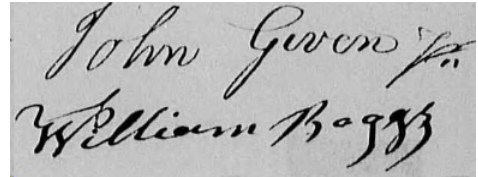 John Given Jr.
William Boggs